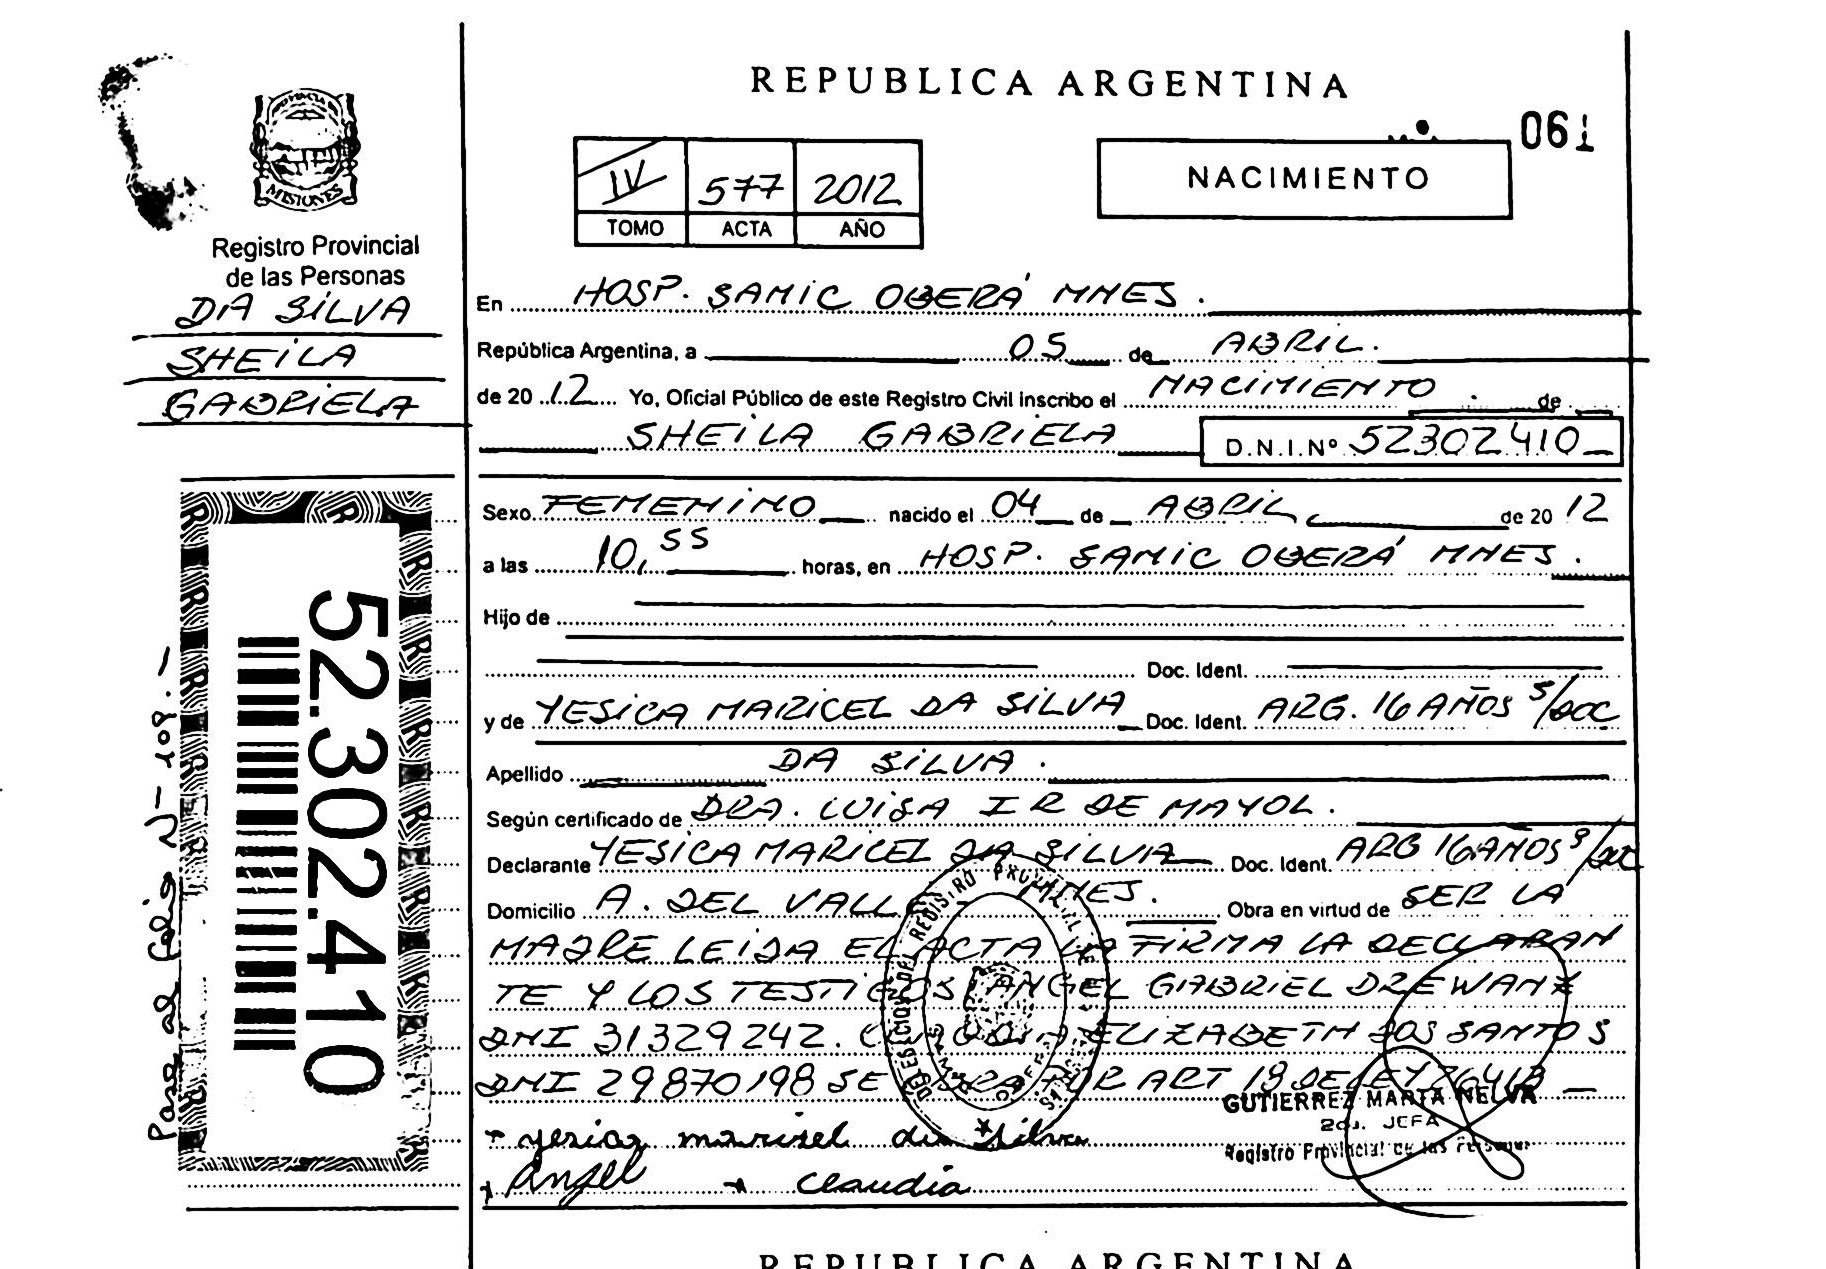 REPUBLICA ARGENTINA
061
IV 577 2012
TOMO ACTA AÑO
NACIMIENTO
MISIONES
Registro Provincial
de las Personas
DA SILVA
SHEILA
GABRIELA
52.302.410
En HOSP. SAMIC OBERÁ MNES.
República Argentina, a 05 de ABRIL.
de 20 12 Yo, Oficial Público de este Registro Civil inscribo el NACIMIENTO de
SHEILA GABRIELA D.N.I.Nº 52302410
Sexo FEMENINO nacido el 04 de ABRIL de 20 12
a las 10,55 horas, en HOSP. SAMIC OBERÁ MNES.
Hijo de
Doc. Ident.
y de YESICA MARICEL DA SILVA Doc. Ident. ARG. 16 AÑOS S/DOC
Apellido DA SILVA.
Según certificado de DRA. LUISA I R DE MAYOL.
Declarante YESICA MARICEL DA SILVA Doc. Ident. ARG 16 AÑOS S/DOC
Domicilio A. DEL VALLE MNES. Obra en virtud de SER LA
MADRE LEIDA EL ACTA LA FIRMA LA DECLARAN
TE Y LOS TESTIGOS ANGEL GABRIEL DREWANZ
DNI 31329242. CLAUDIA ELIZABETH DOS SANTOS
DNI 29870198 SE POR ART 19 DE LEY 26413
GUTIERREZ MARTA NELVA
2da. JEFA
Registro Provincial de las Personas
yesica maricel da silva
Angel claudia
REPUBLICA ARGENTINA